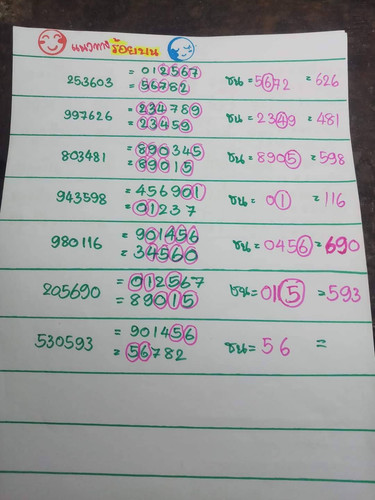 แนวทางร้อยบน
= 012567
253603 ชน = 5672 = 626
= 56782
= 234789
997626 ชน = 2349 = 481
= 23459
= 890345
803481 ชน = 8905 = 598
= 89015
= 456901
943598 ชน = 01 = 116
= 01237
= 901456
980116 ชน = 0456 = 690
= 34560
= 012567
205690 ชน = 015 = 593
= 89015
= 901456
530593 ชน = 56 =
= 56782